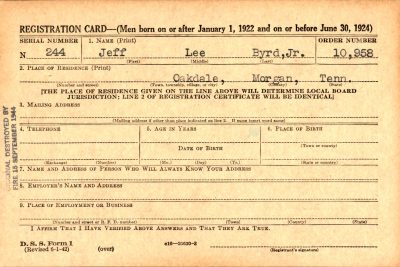 REGISTRATION CARD—(Men born on or after January 1, 1922 and on or before June 30, 1924)
SERIAL NUMBER 1. NAME (Print) ORDER NUMBER
N 244 Jeff Lee Byrd, Jr. 10,958
(First) (Middle) (Last)
2. PLACE OF RESIDENCE (Print)
Oakdale, Morgan, Tenn.
(Number and street) (Town, township, village, or city) (County) (State)
[THE PLACE OF RESIDENCE GIVEN ON THE LINE ABOVE WILL DETERMINE LOCAL BOARD
JURISDICTION; LINE 2 OF REGISTRATION CERTIFICATE WILL BE IDENTICAL]
3. MAILING ADDRESS
(Mailing address if other than place indicated on line 2. If same insert word same)
4. TELEPHONE 5. AGE IN YEARS 6. PLACE OF BIRTH
(Town or county)
DATE OF BIRTH
(Exchange) (Number) (Mo.) (Day) (Yr.) (State or country)
7. NAME AND ADDRESS OF PERSON WHO WILL ALWAYS KNOW YOUR ADDRESS
8. EMPLOYER'S NAME AND ADDRESS
9. PLACE OF EMPLOYMENT OR BUSINESS
(Number and street or R. F. D. number) (Town) (County) (State)
I AFFIRM THAT I HAVE VERIFIED ABOVE ANSWERS AND THAT THEY ARE TRUE.
D. S. S. Form 1
(Revised 6-1-42) (over)
(Registrant's signature)
ORIGINAL DESTROYED BY
FIRE 15 SEPTEMBER 1944